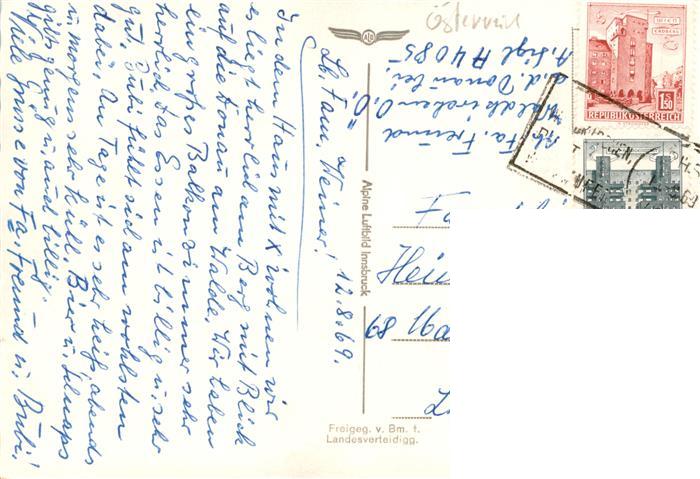 Lb. Fam. Heiner! 12.8.69.
In dem Haus mit X wohnen wir
es liegt herrlich am Berg mit Blick
auf die Donau am Walde. Wir haben
ein großes Balkonzimmer sehr
herrlich das Essen ist billig u. sehr
gut. Bubi fühlt sich am wohlsten
dabei. Am Tage ist es sehr heiß, abends
u. morgens sehr kühl. Bier u. Schnaps
gibts genug u. auch billig.
Viele Grüsse von Fa. Freund u. Bubi!
Österreich
Fa. Freund
Waldkirchen O.Ö.
a.d. Donau bei
A. Sigl A 4085
Alpine Luftbild Innsbruck
Freigeg. v. Bm. f.
Landesverteidigg.
WIEN
ERDBERG
1.50
REPUBLIK ÖSTERREICH
Hei
89